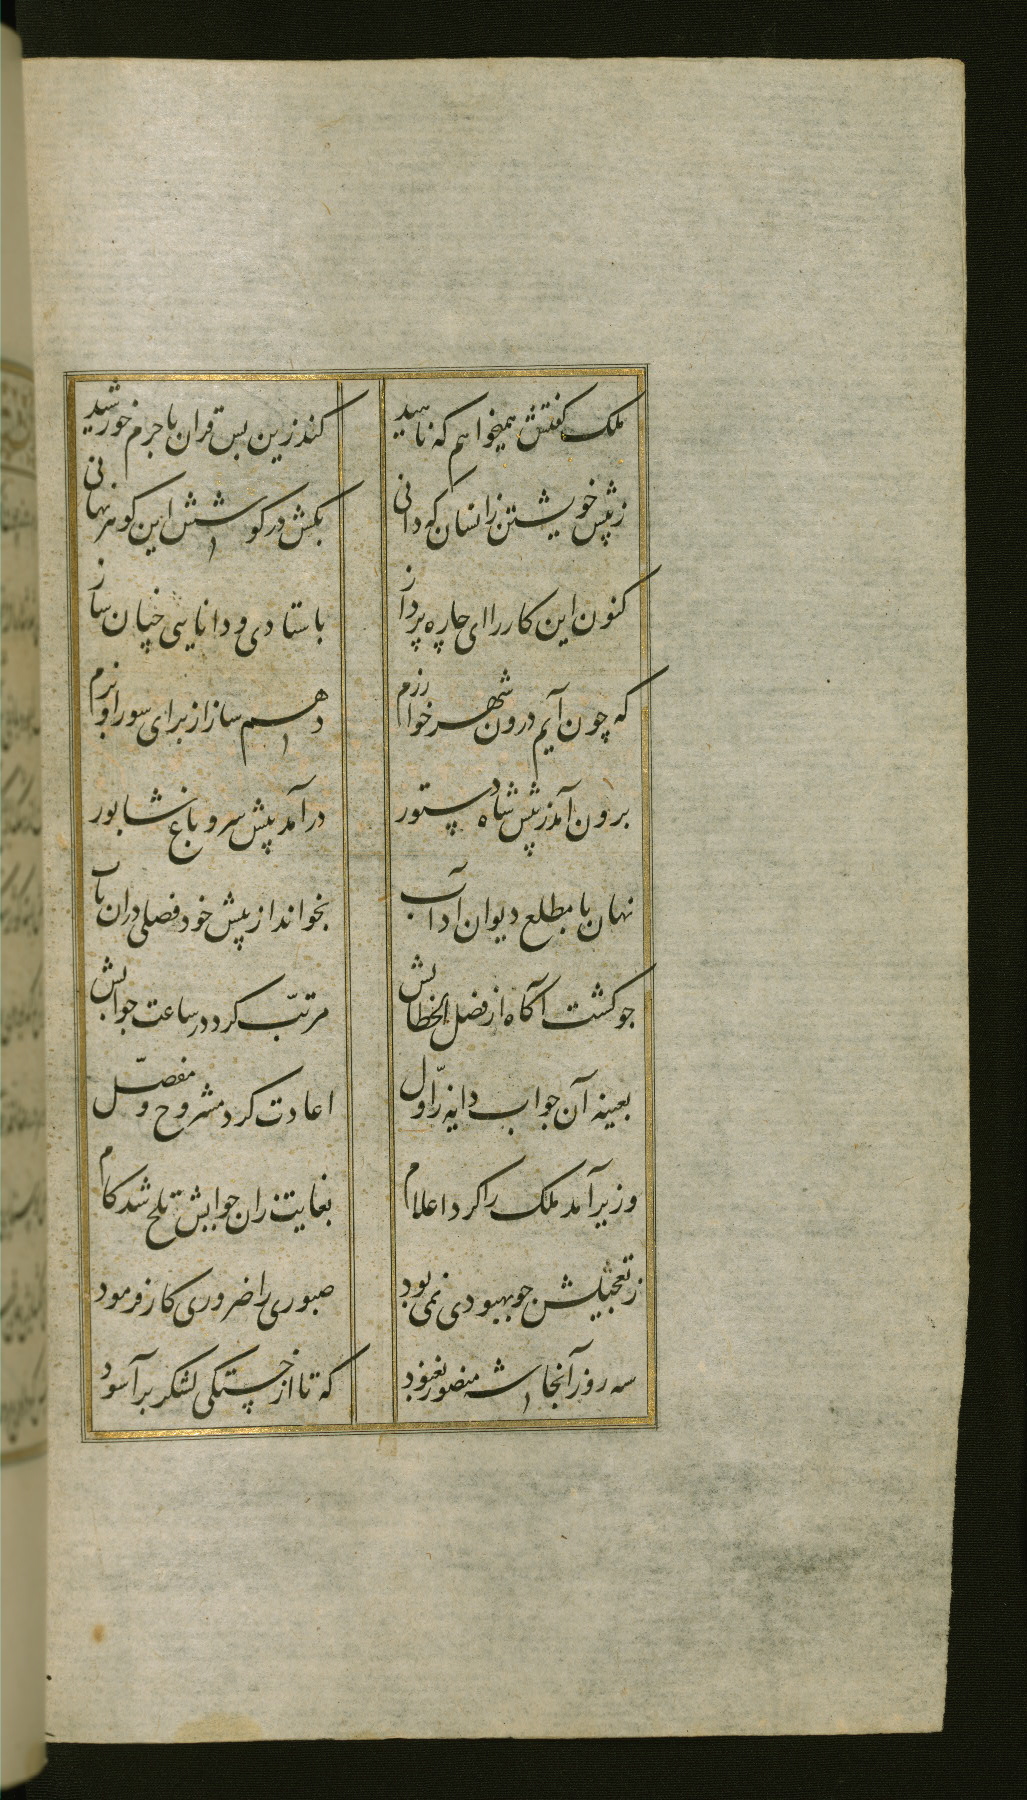 ملک گفتش همیخواهم که ناهید
کند زین پس قران با جرم خورشید
ز پیش خویشتن زانسان که دانی
بکش در گوشش این گوهر نهانی
کنون این کار را ای چاره پرداز
باستادی و دانایی چنان ساز
که چون آیم درون شهر خوارزم
دهم ساز از برای سور او بزم
برون آمد ز پیش شاه دستور
درآمد پیش سرو باغ شابور
نهان با مطلع دیوان آداب
بخواند از پیش خود فصلی دران باب
جو گشت آگاه از فصل الخطابش
مرتّب کرد در ساعت جوابش
بعینه آن جواب دانه ز اوّل
اعادت کرد مشروح و مفصّل
وزیر آمد ملک را کرد اعلام
بغایت زان جوابش تلخ شد کام
ز تعجیلش جو بهبودی نمی بود
صبوری را ضروری کار فرمود
سه روز آنجا شه منصور بغنود
که تا از خستگی لشکر برآسود